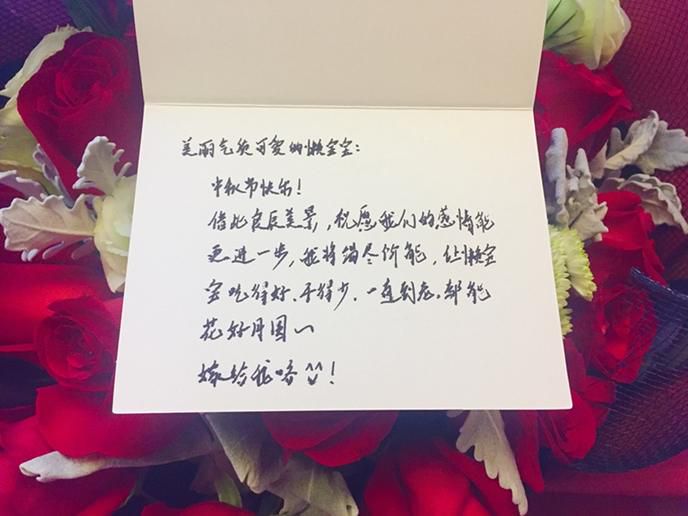 美丽气质可爱的懒宝宝:
中秋节快乐!
借此良辰美景,祝愿我们的感情能
更进一步,我将竭尽所能,让懒宝
宝吃得好.干得少.一直到老.都能
花好月圆~
嫁给我咯^^!